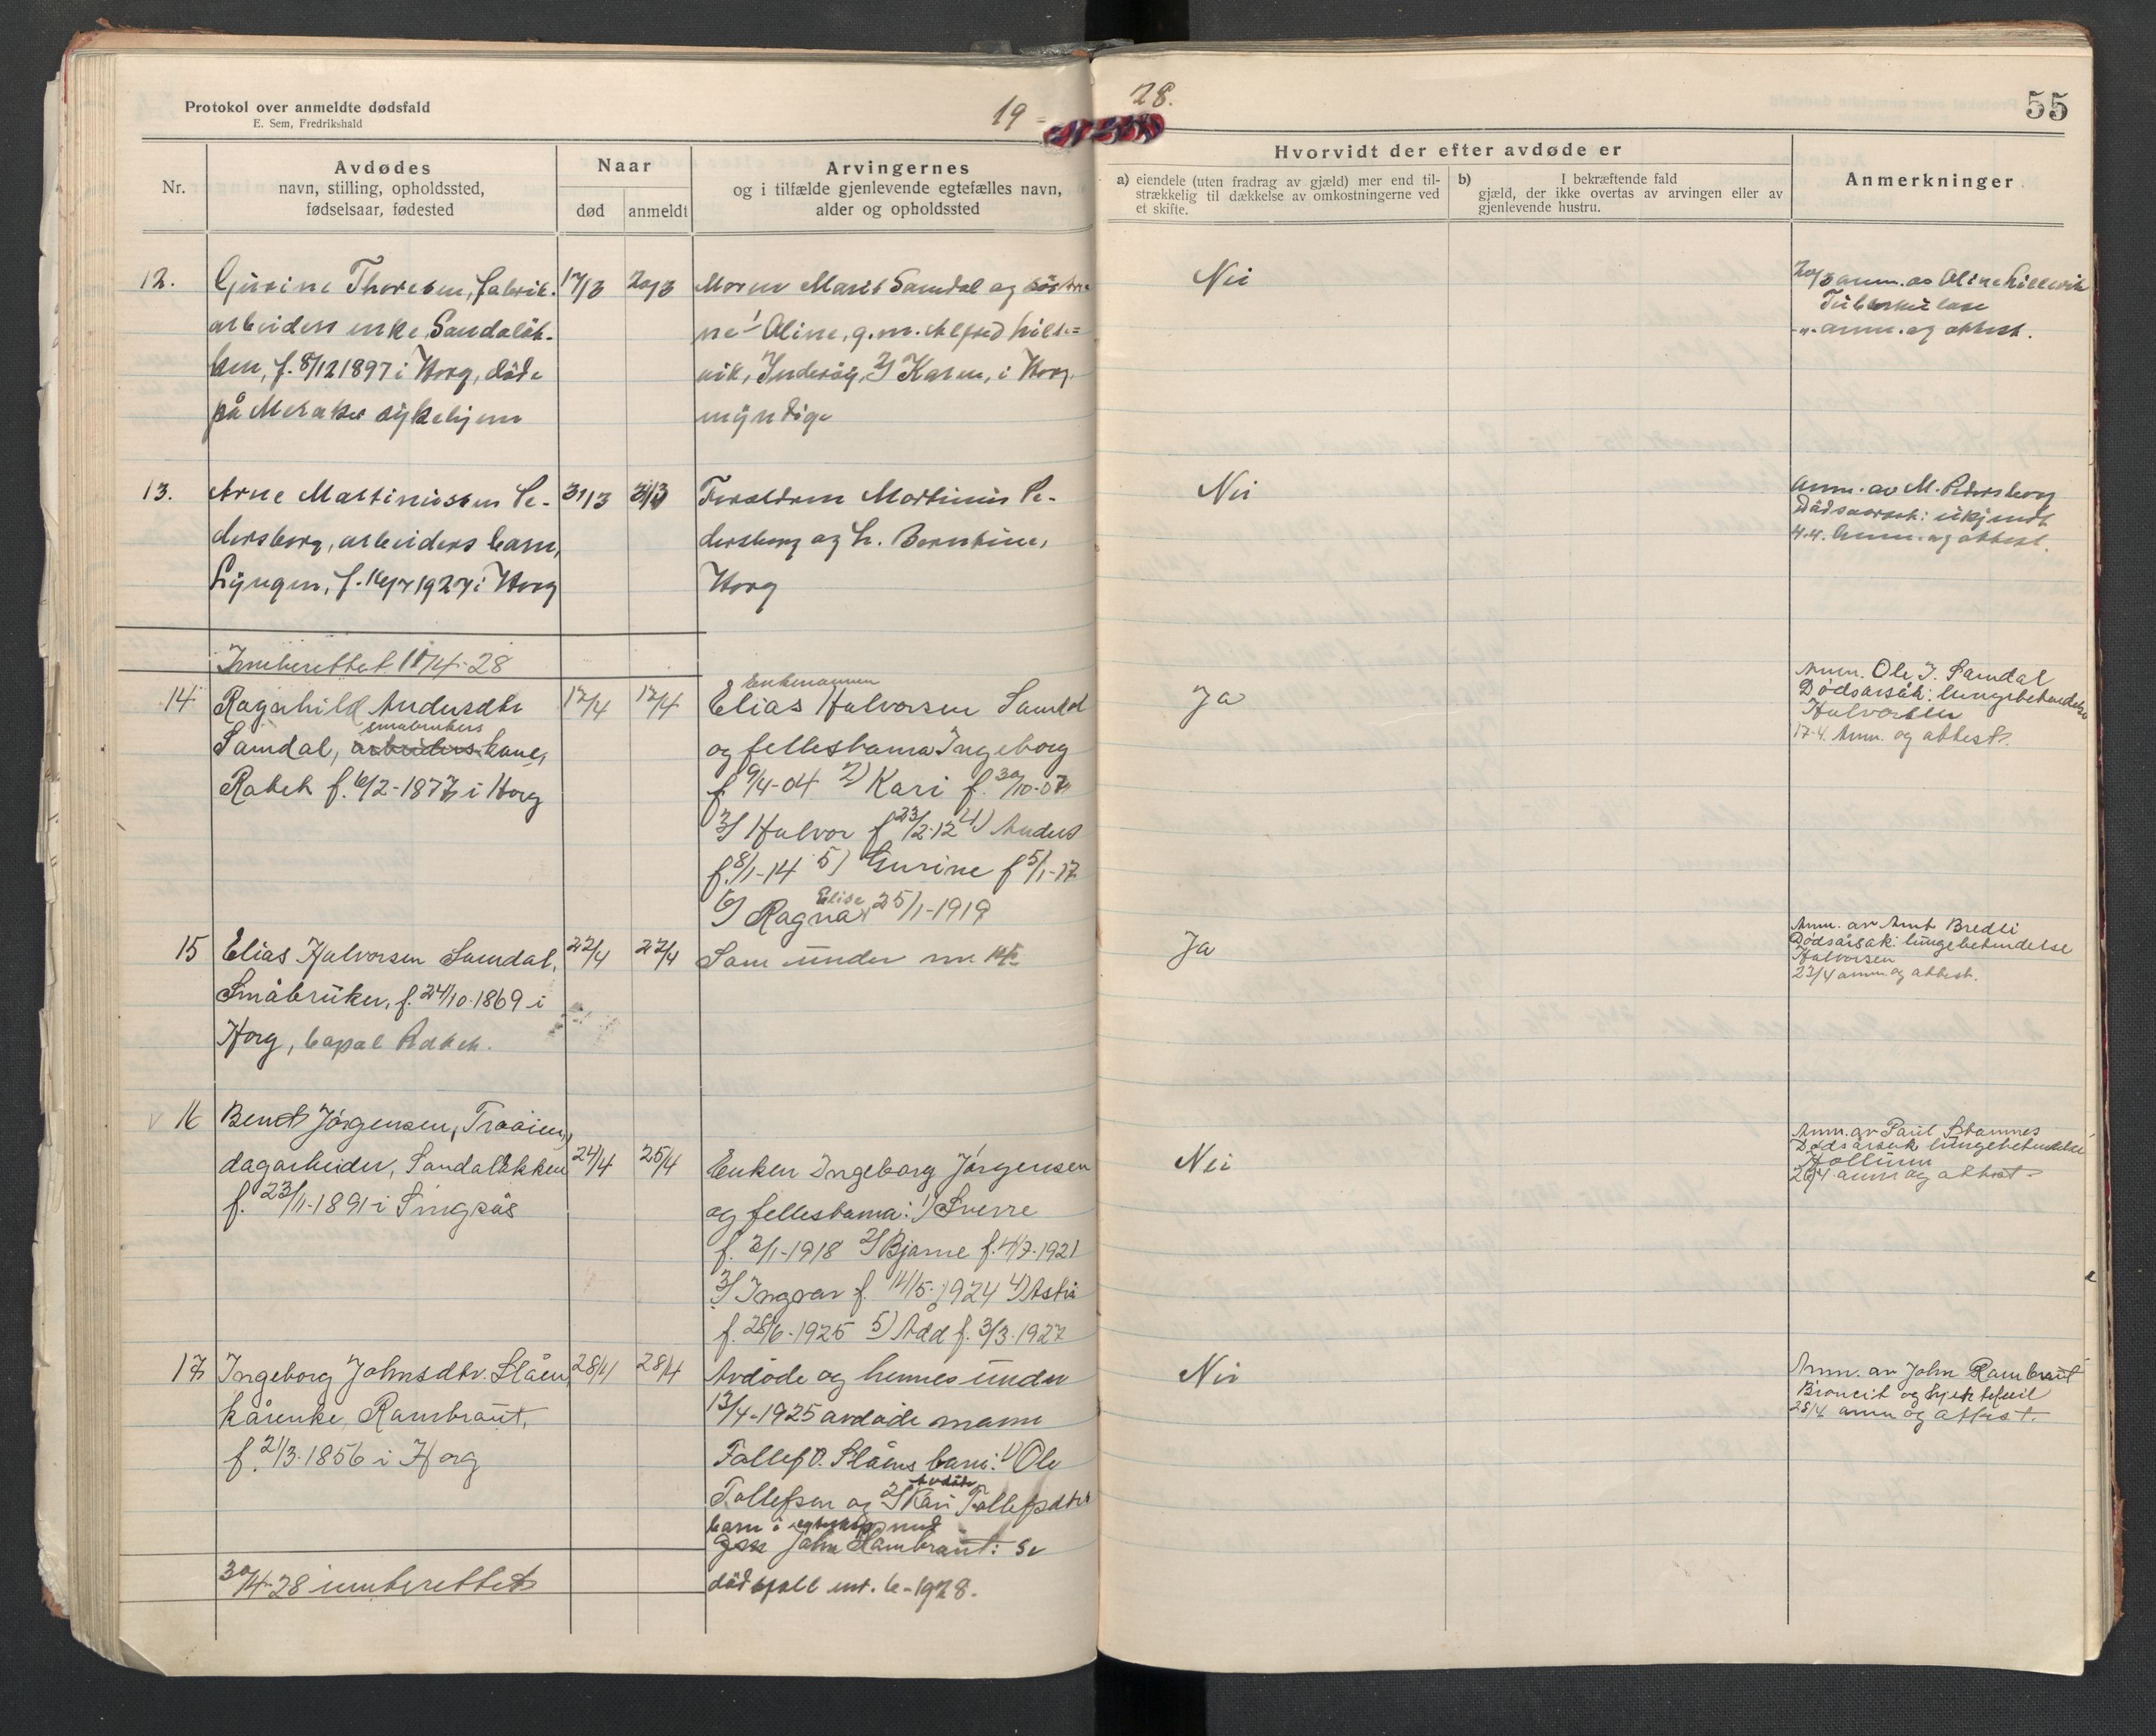 Protokol over anmeldte dødsfald
E. Sem, Fredrikshald
19 = 28.
55
Nr.
Avdødes
navn, stilling, opholdssted,
fødselsaar, fødested
Naar
død
anmeldt
Arvingernes
og i tilfælde gjenlevende egtefælles navn,
alder og opholdssted
Hvorvidt der efter avdøde er
a) eiendele (uten fradrag av gjæld) mer end til-
strækkelig til dækkelse av omkostningerne ved
et skifte.
b) I bekræftende fald
gjæld, der ikke overtas av arvingen eller av
gjenlevende hustru.
Anmerkninger
12.
Gurine Thoresen, fabrik-
arbeiders enke, Sandaløk-
ken, f. 8/12 1897 i Horg, døde
på Meraker sykehjem
17/3
20/3
Moren Marit Samdal og søstre
ne 1/ Oline, g. m. Alfred Lille=
vik, Inderøy, 2/ Karen, i Horg
myndige
Nei
20/3 anm. av Oline Lillevik
Tuberkulose
-"- anm. og attest.
13.
Arne Martinussen Pe-
dersberg, arbeiders barn,
Lyngen, f. 16/7 1927 i Horg
31/3
31/3
Foreldrene Martinus Pe-
dersberg og h. Berntine,
Horg
Nei
Anm. av M. Pedersberg
Dødsaarsak: ukjendt
4.4. Anm. og attest.
Innberettet 11/4-28
14
Ragnhild Andersdtr
småbrukers
Samdal, arbeiders kone,
Rabek f. 6/2-1877 i Horg
12/4
12/4
Enkemannen
Elias Halvorsen Samdal
og fellesbarna Ingeborg
f 9/4-04 2) Kari f. 30/10-07
3/ Halvor f 23/2-12 4) Anders
f. 8/1-14 5) Gurine f 5/1-17
Elise
6/ Ragna 25/1-1919
Ja
Anm. Ole J. Samdal
Dødsårsak: lungebetendelse
Halvorsen
17-4. Anm. og attest.
15
Elias Halvorsen Samdal,
Småbruker, f. 24/10-1869 i
Horg, bopæl Rabek.
22/4
22/4
Som under nr 14
Ja
Anm. av Arnt Bredli
Dødsårsak: lungebetendelse
Halvorsen
23/4 anm. og attest.
16
Bernt Jørgensen, Traaien,
dagarbeider, Sandaløkken
f. 23/11-1891 i Singsås
24/4
25/4
Enken Ingeborg Jørgensen
og fellesbarna: 1) Sverre
f. 2/1-1918 2/ Bjarne f. 4/7-1921
3/ Ingvar f. 14/5-1924 4) Astri
f. 28/6-1925 5) Odd f. 3/3-1927
Nei
Anm. av Paul Stamnes
Dødsårsak lungebetendelse
Hollum
26/4 anm og attest
17
Ingeborg Johnsdtr. Slåen,
kårenke, Rambraut,
f. 21/3-1856 i Horg
28/4
28/4
Avdøde og hennes under
13/4-1925 avdøde mann
Tollef O. Slåens barn: 1) Ole
avdøde
Tollefsen og 2/ Kari Tollefsdtrs
barn i egteskap med
John Rambraut: se
dødsfall nr. 6-1928.
Nei
Anm. av John Rambraut
Broncit og hjertefeil
28/4 anm og attest.
30/4-28 innberettet